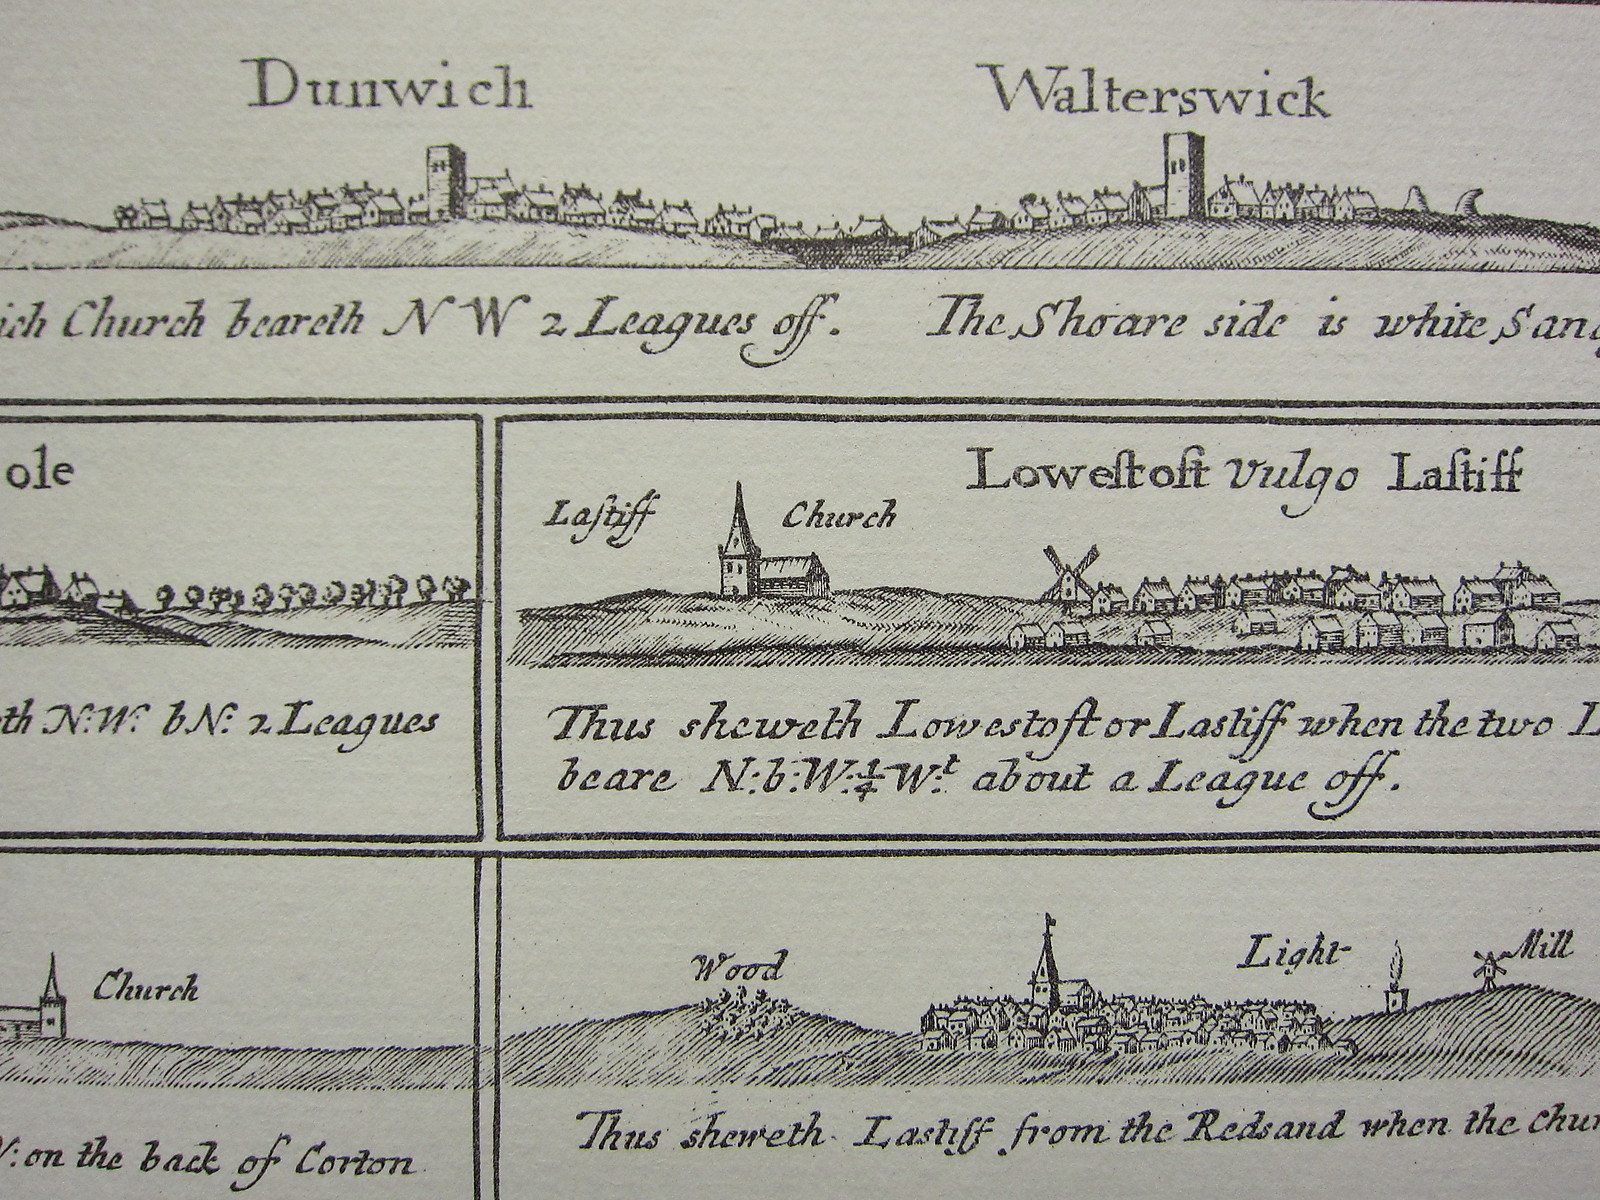 Dunwich
Walterswick
Church beareth N W 2 Leagues off.
The Shoare side is white
Loweſtoft vulgo Laſtiff
Laſtiff Church
N:W: b N: 2 Leagues
Thus sheweth Lowestoft or Lastiff when the two
beare N: b: W: ¼ W:t about a League off.
Church
Wood
Light
Mill
on the back of Corton
Thus sheweth Lastiff from the Redsand when the